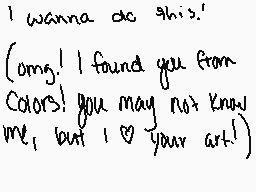 I wanna do this!
(omg! I found you from
Colors! you may not know
me, but i ♡ your art!)